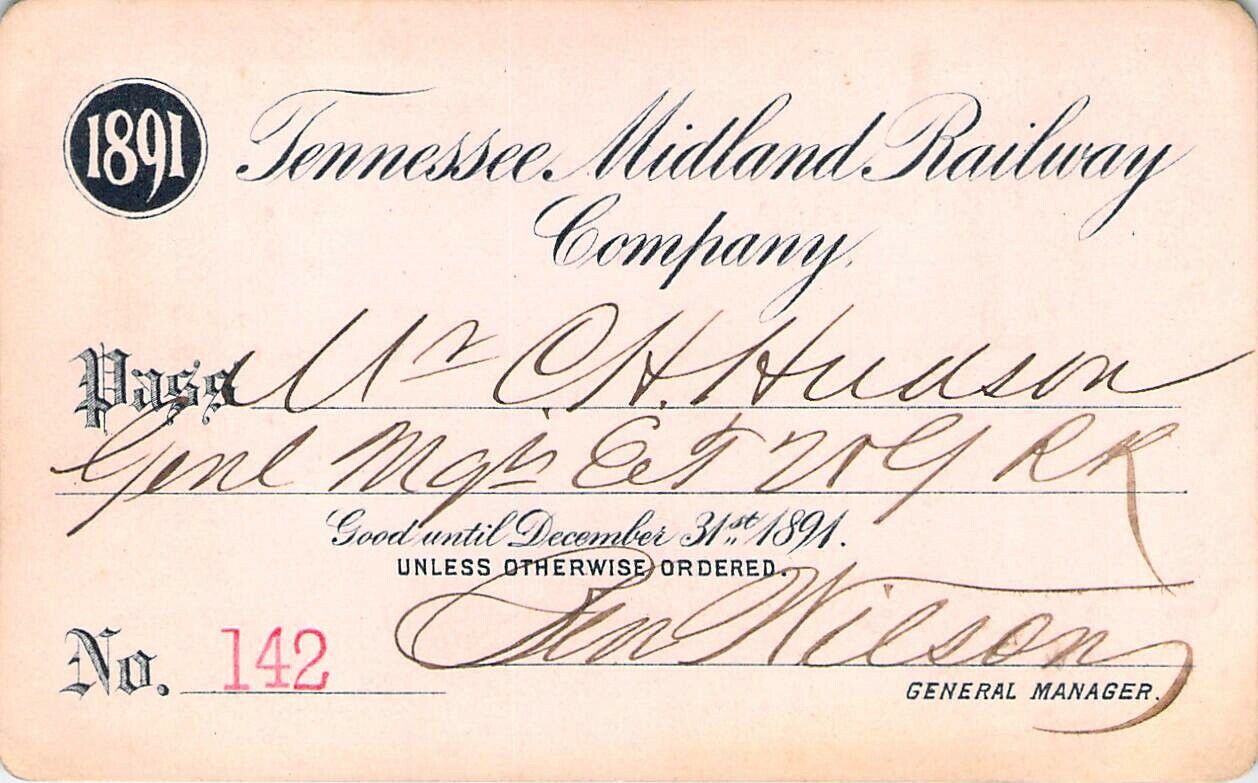 1891
Tennessee Midland Railway
Company.
Pass Mr C. H. Hudson
Genl Mgr E T V & G R R
Good until December 31st 1891.
UNLESS OTHERWISE ORDERED.
Wilson
No. 142
GENERAL MANAGER.